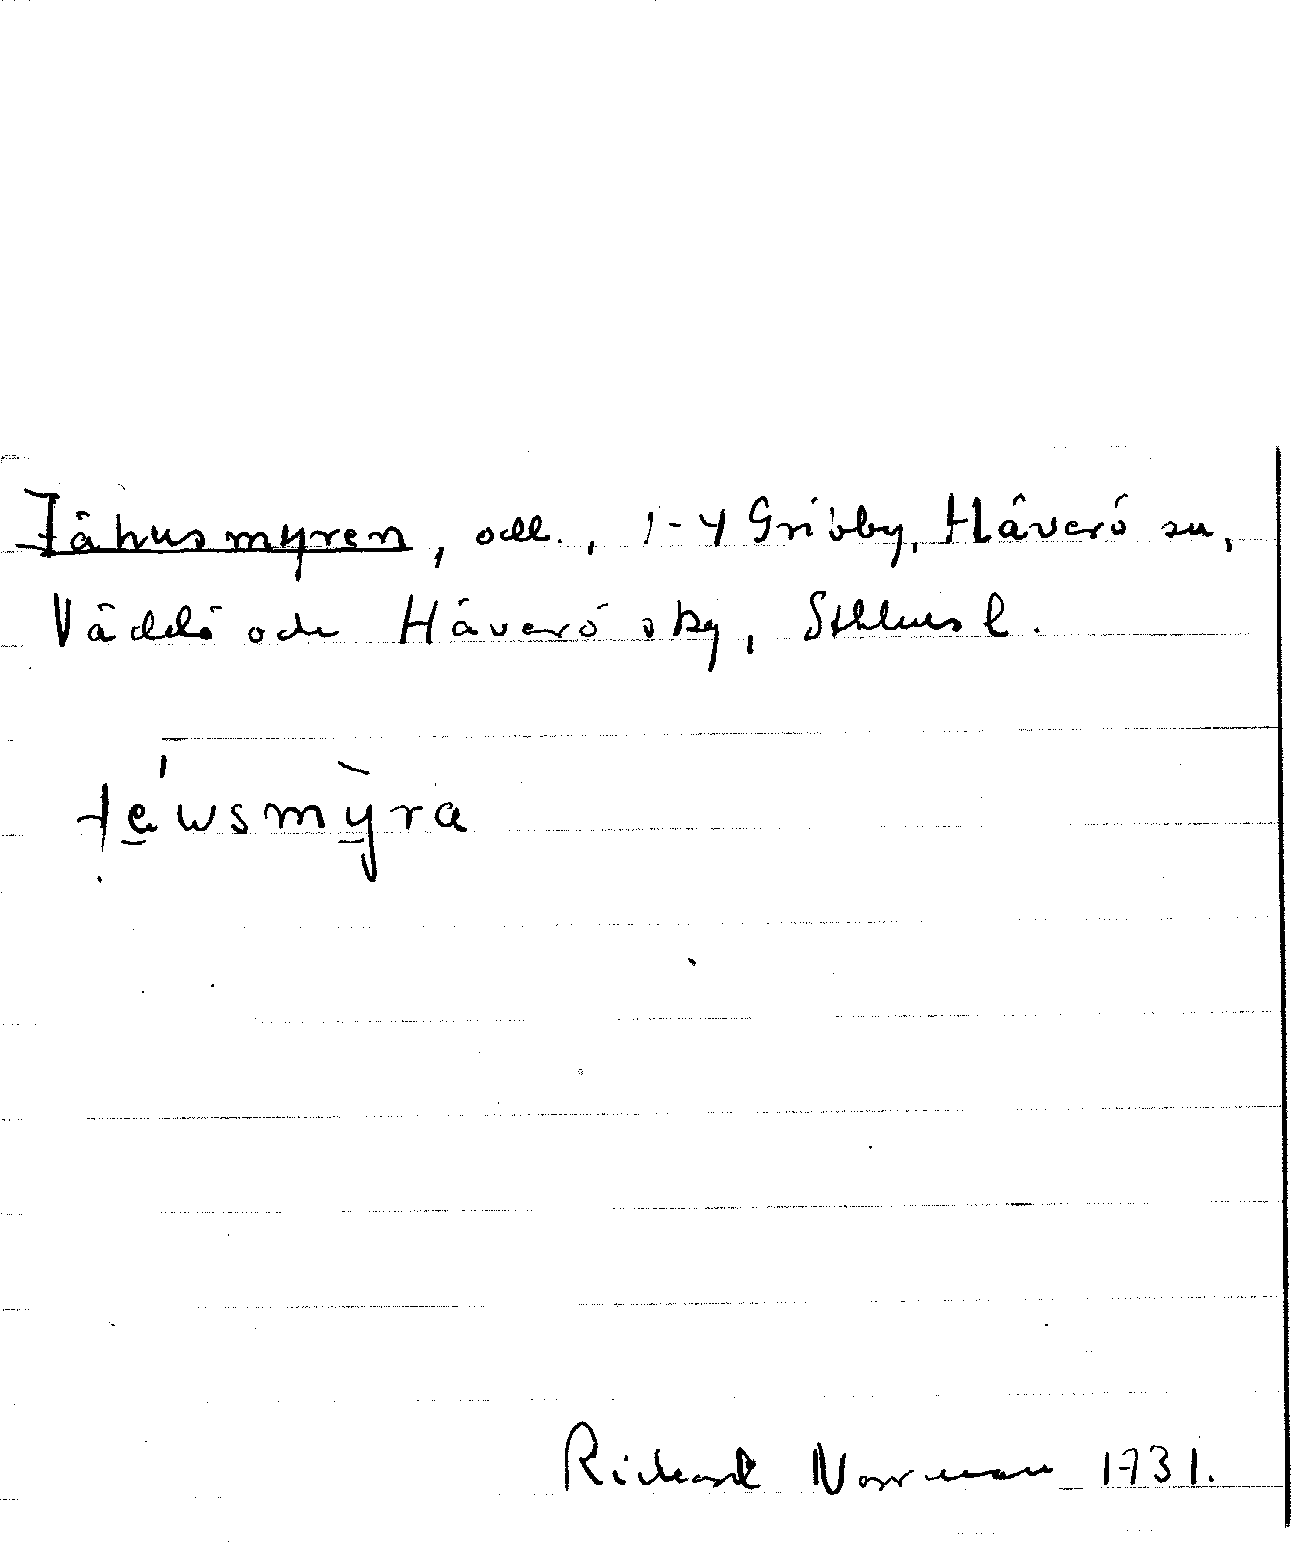 Tåhusmyren, odl., 1-4 Gribby, Häverö sn,
Väddö och Häverö skg, Sthlms l.
Rickard Norrman 1931.